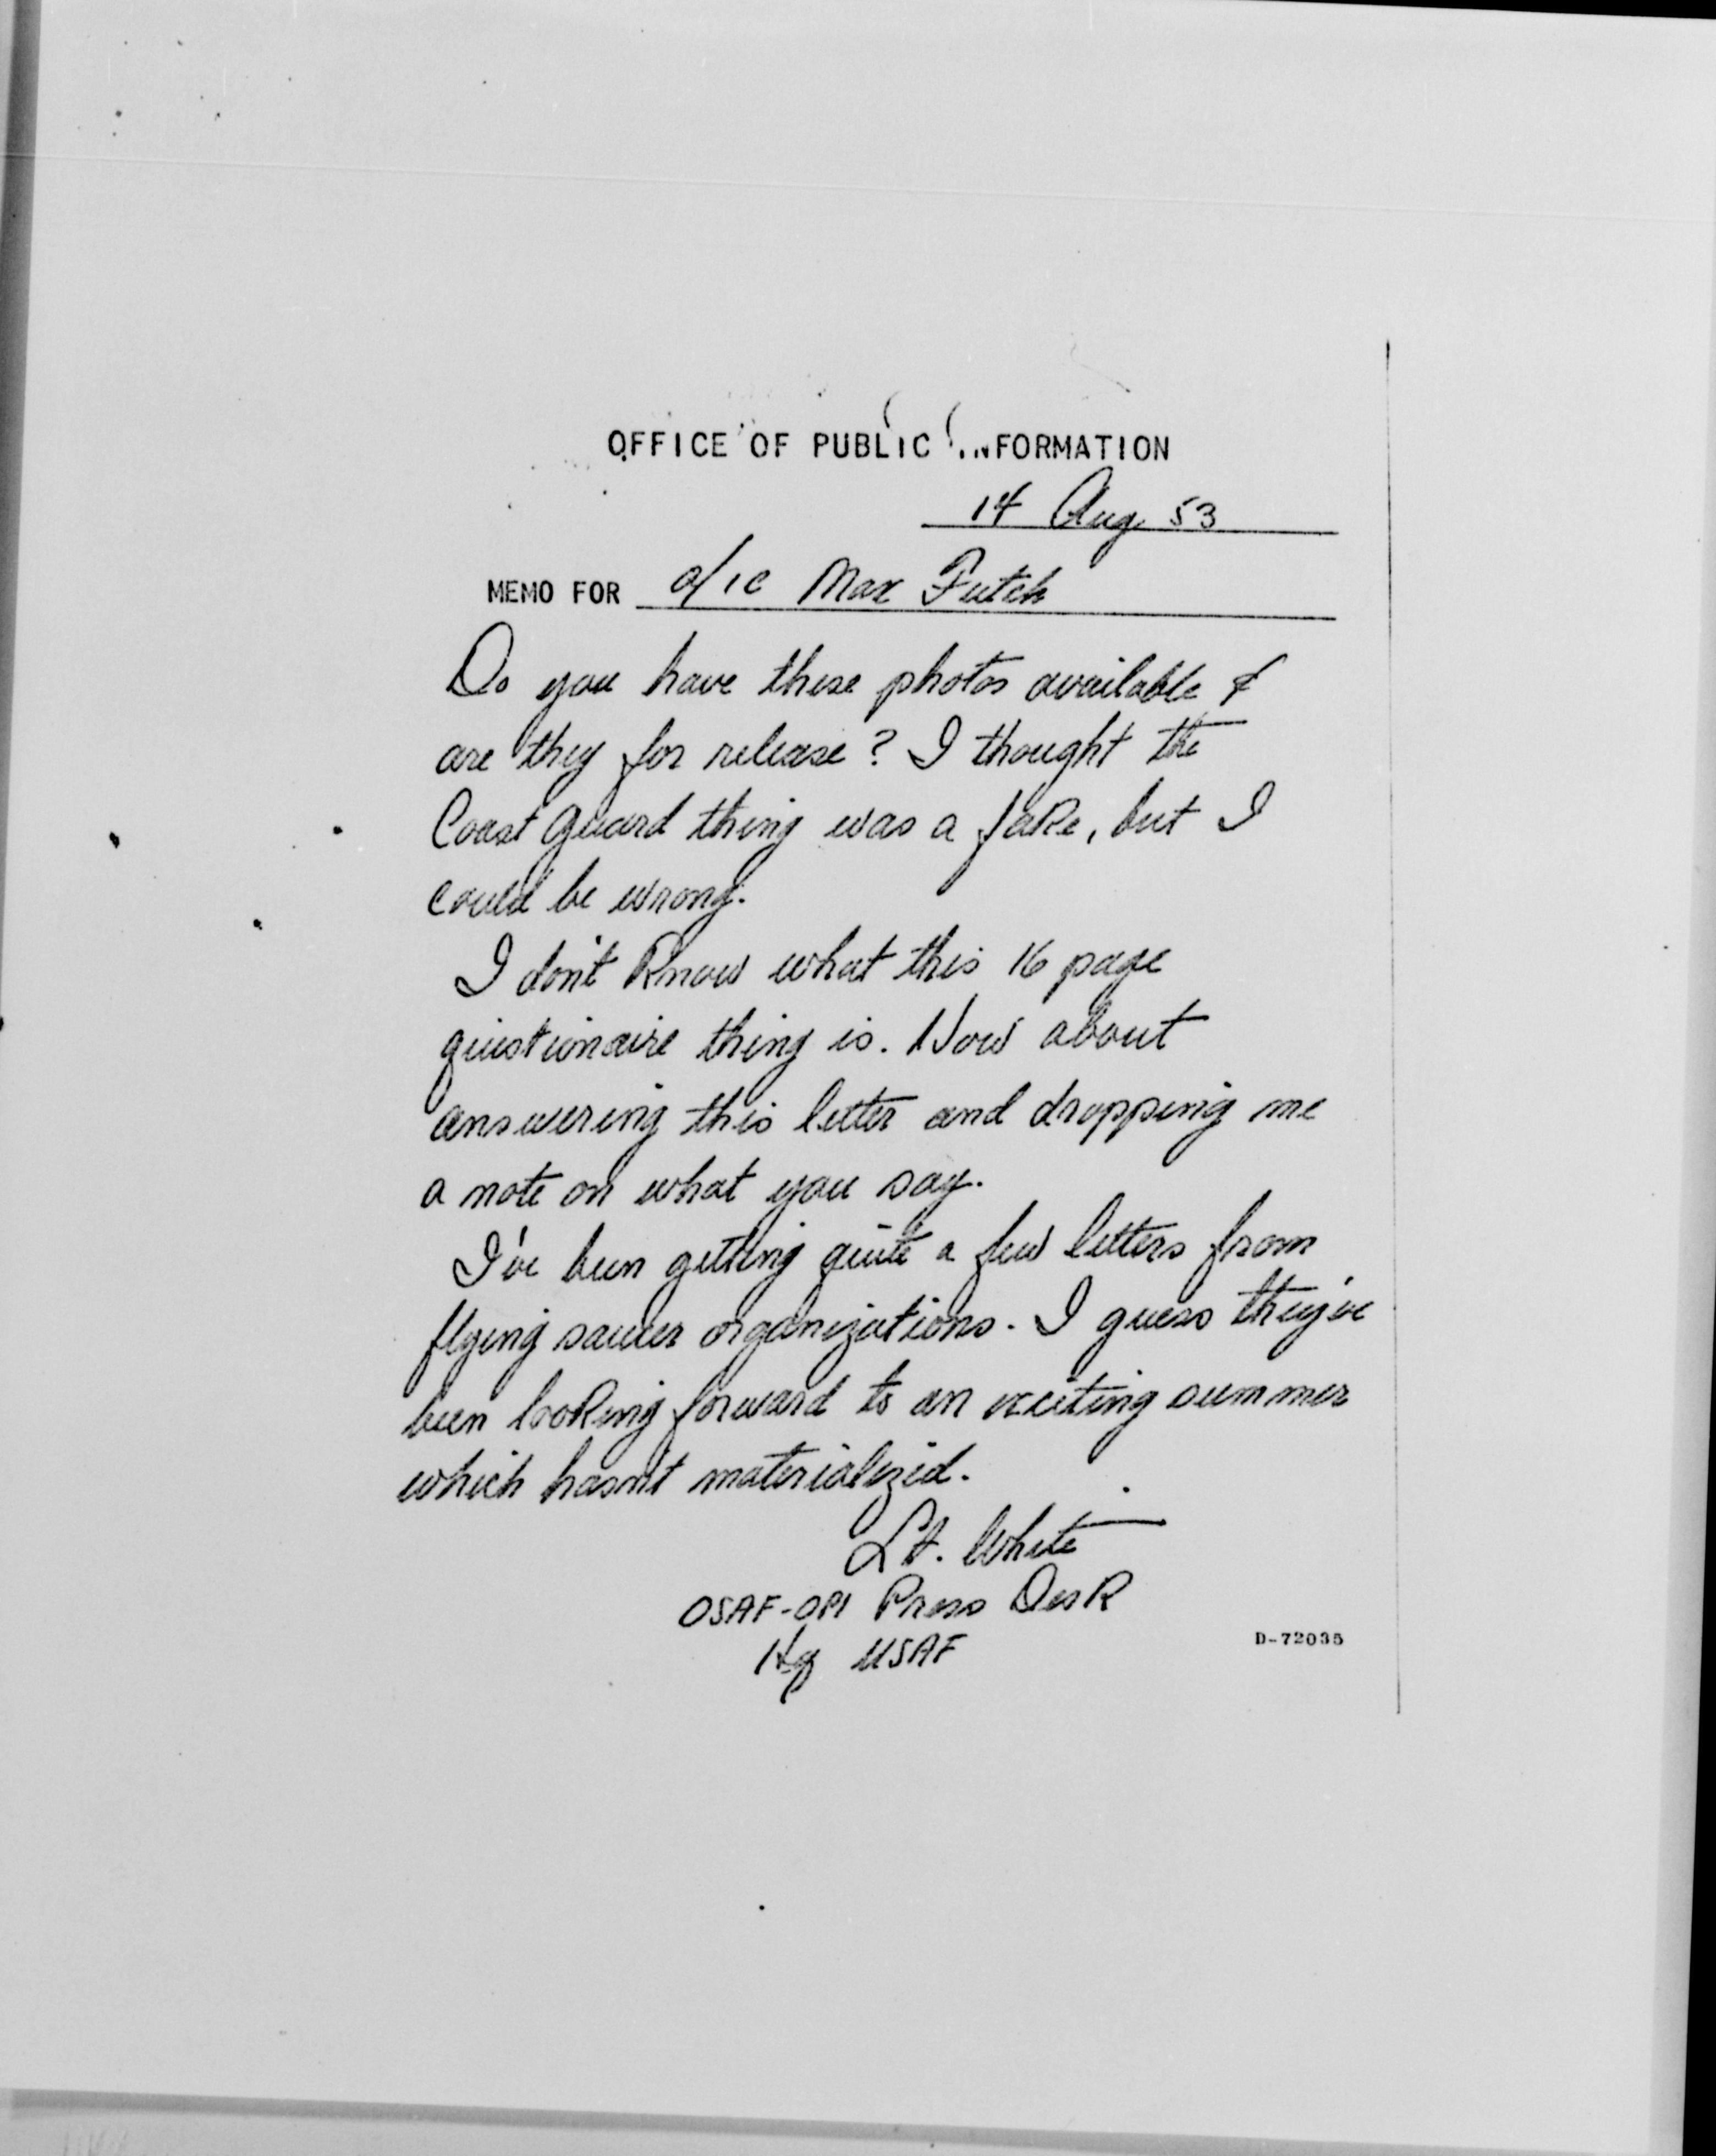 OFFICE OF PUBLIC INFORMATION
14 Aug 53
MEMO FOR a/1c Max Futch
Do you have these photos available &
are they for release? I thought the
Coast Guard thing was a fake, but I
could be wrong.
I don't know what this 16 page
questionaire thing is. How about
answering this letter and dropping me
a note on what you say.
I've been getting quite a few letters from
flying saucer organizations. I guess they've
been looking forward to an exciting summer
which hasn't materialized.
Lt. White
OSAF-OPI Press Desk
Hq USAF
D-72035